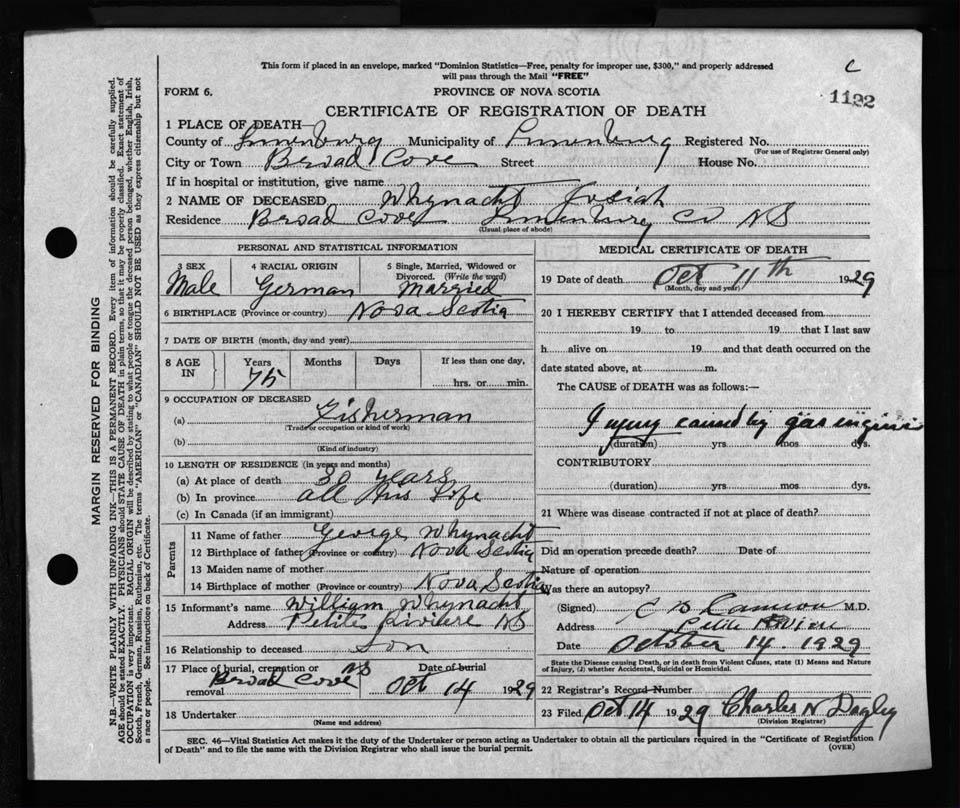 This form if placed in an envelope, marked "Dominion Statistics—Free, penalty for improper use, $300," and properly addressed
will pass through the Mail "FREE"
C
1122
FORM 6.
PROVINCE OF NOVA SCOTIA
CERTIFICATE OF REGISTRATION OF DEATH
1 PLACE OF DEATH—
County of Lunenburg Municipality of Lunenburg Registered No.
(For use of Registrar General only)
City or Town Broad Cove Street House No.
If in hospital or institution, give name
2 NAME OF DECEASED Whynacht Josiah
Residence Broad Cove Lunenburg Co NS
(Usual place of abode)
PERSONAL AND STATISTICAL INFORMATION
3 SEX
Male
4 RACIAL ORIGIN
German
5 Single, Married, Widowed or
Divorced. (Write the word)
Married
6 BIRTHPLACE (Province or country) Nova Scotia
7 DATE OF BIRTH (month, day and year)
8 AGE
IN
Years
75
Months
Days
If less than one day,
hrs. or min.
9 OCCUPATION OF DECEASED
(a) Fisherman
(Trade or occupation or kind of work)
(b)
(Kind of industry)
10 LENGTH OF RESIDENCE (in years and months)
(a) At place of death 30 years
(b) In province all his life
(c) In Canada (if an immigrant)
Parents
11 Name of father George Whynacht
12 Birthplace of father (Province or country) Nova Scotia
13 Maiden name of mother
14 Birthplace of mother (Province or country) Nova Scotia
15 Informant's name William Whynacht
Address Petite Riviere NS
16 Relationship to deceased Son
17 Place of burial, cremation or
removal Broad Cove NS
Date of burial
Oct 14 1929
18 Undertaker
(Name and address)
MEDICAL CERTIFICATE OF DEATH
19 Date of death Oct 11th 1929
(Month, day and year)
20 I HEREBY CERTIFY that I attended deceased from
19 to 19 that I last saw
h alive on 19 and that death occurred on the
date stated above, at m.
The CAUSE of DEATH was as follows:—
Injury caused by gas engine
(duration) yrs mos dys.
CONTRIBUTORY
(duration) yrs. mos. dys.
21 Where was disease contracted if not at place of death?
Did an operation precede death? Date of
Nature of operation
Was there an autopsy?
(Signed) M.D.
Address Petite Riviere
Date October 14. 1929
State the Disease causing Death, or in death from Violent Causes, state (1) Means and Nature
of Injury, (2) whether Accidental, Suicidal or Homicidal.
22 Registrar's Record Number
23 Filed Oct 14 1929 Charles N Dagley
(Division Registrar)
SEC. 46—Vital Statistics Act makes it the duty of the Undertaker or person acting as Undertaker to obtain all the particulars required in the "Certificate of Registration
of Death" and to file the same with the Division Registrar who shall issue the burial permit.
(OVER)
MARGIN RESERVED FOR BINDING
N.B.—WRITE PLAINLY WITH UNFADING INK—THIS IS A PERMANENT RECORD. Every item of information should be carefully supplied.
AGE should be stated EXACTLY. PHYSICIANS should STATE CAUSE OF DEATH in plain terms, so that it may be properly classified. Exact statement of
OCCUPATION is very important. RACIAL ORIGIN will be described by stating to what people or tongue the deceased person belonged, whether English, Irish,
Scotch, French, German, Russian, Ruthenian, etc. The terms "AMERICAN" or "CANADIAN" SHOULD NOT BE USED as they express citizenship but not
a race or people. See instructions on back of Certificate.